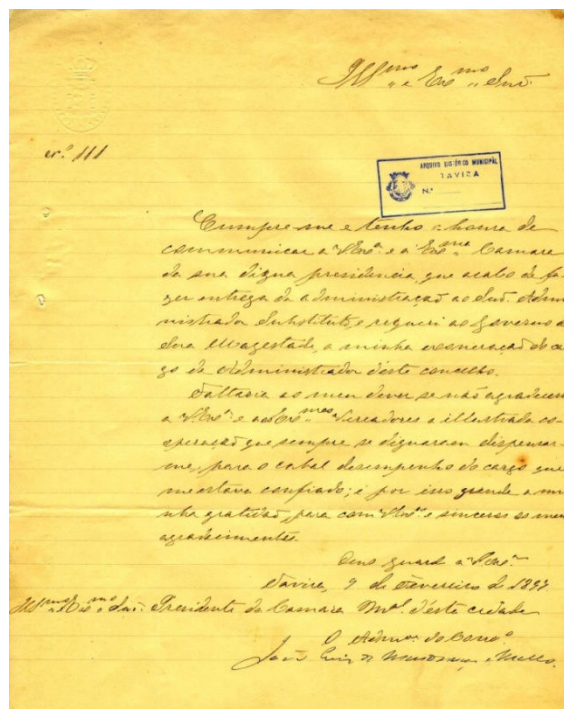 Ill.mos e Exmo Snr.
n.º 111
ARQUIVO HISTÓRICO MUNICIPAL
TAVIRA
N.º
Cumpre-me e tenho a honra de
communicar a V. Exª. e á Exma. Camara
da sua digna presidencia, que acabo de fa-
zer entrega da administração ao Snr. Admi
nistrador Substituto, e requeri ao Governo de
Sua Magestade, a minha exoneração do car
go de Administrador d'este concelho.
Faltaria ao meu dever se não agradecesse
a V. Exª. e aos Exmos. Vereadores a illustrada co-
operação que sempre se dignaram dispensar-
me, para o cabal desempenho do cargo que
me estava confiado; é por isso grande a mi
nha gratidão para com V. Exª. e sinceros os meus
agradecimentos.
Deus guard a V. Exª.
Tavira, 9 de Fevereiro de 1897
Illmo. e Exmo. Snr. Presidente da Camara Mal. d'esta cidade
O Admor. do Concº
João Luiz de Mendonça e Mello.